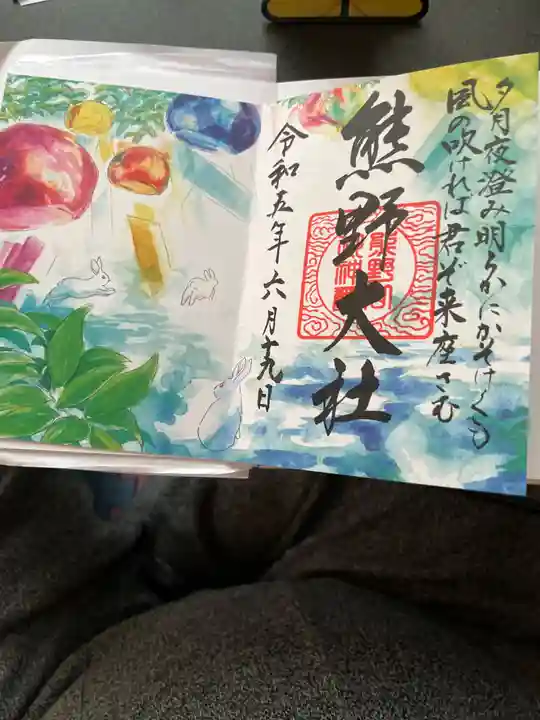 夕月夜澄み明らかにかそけくも
風の吹ければ君ぞ来座さむ
熊野大社
令和五年六月十九日